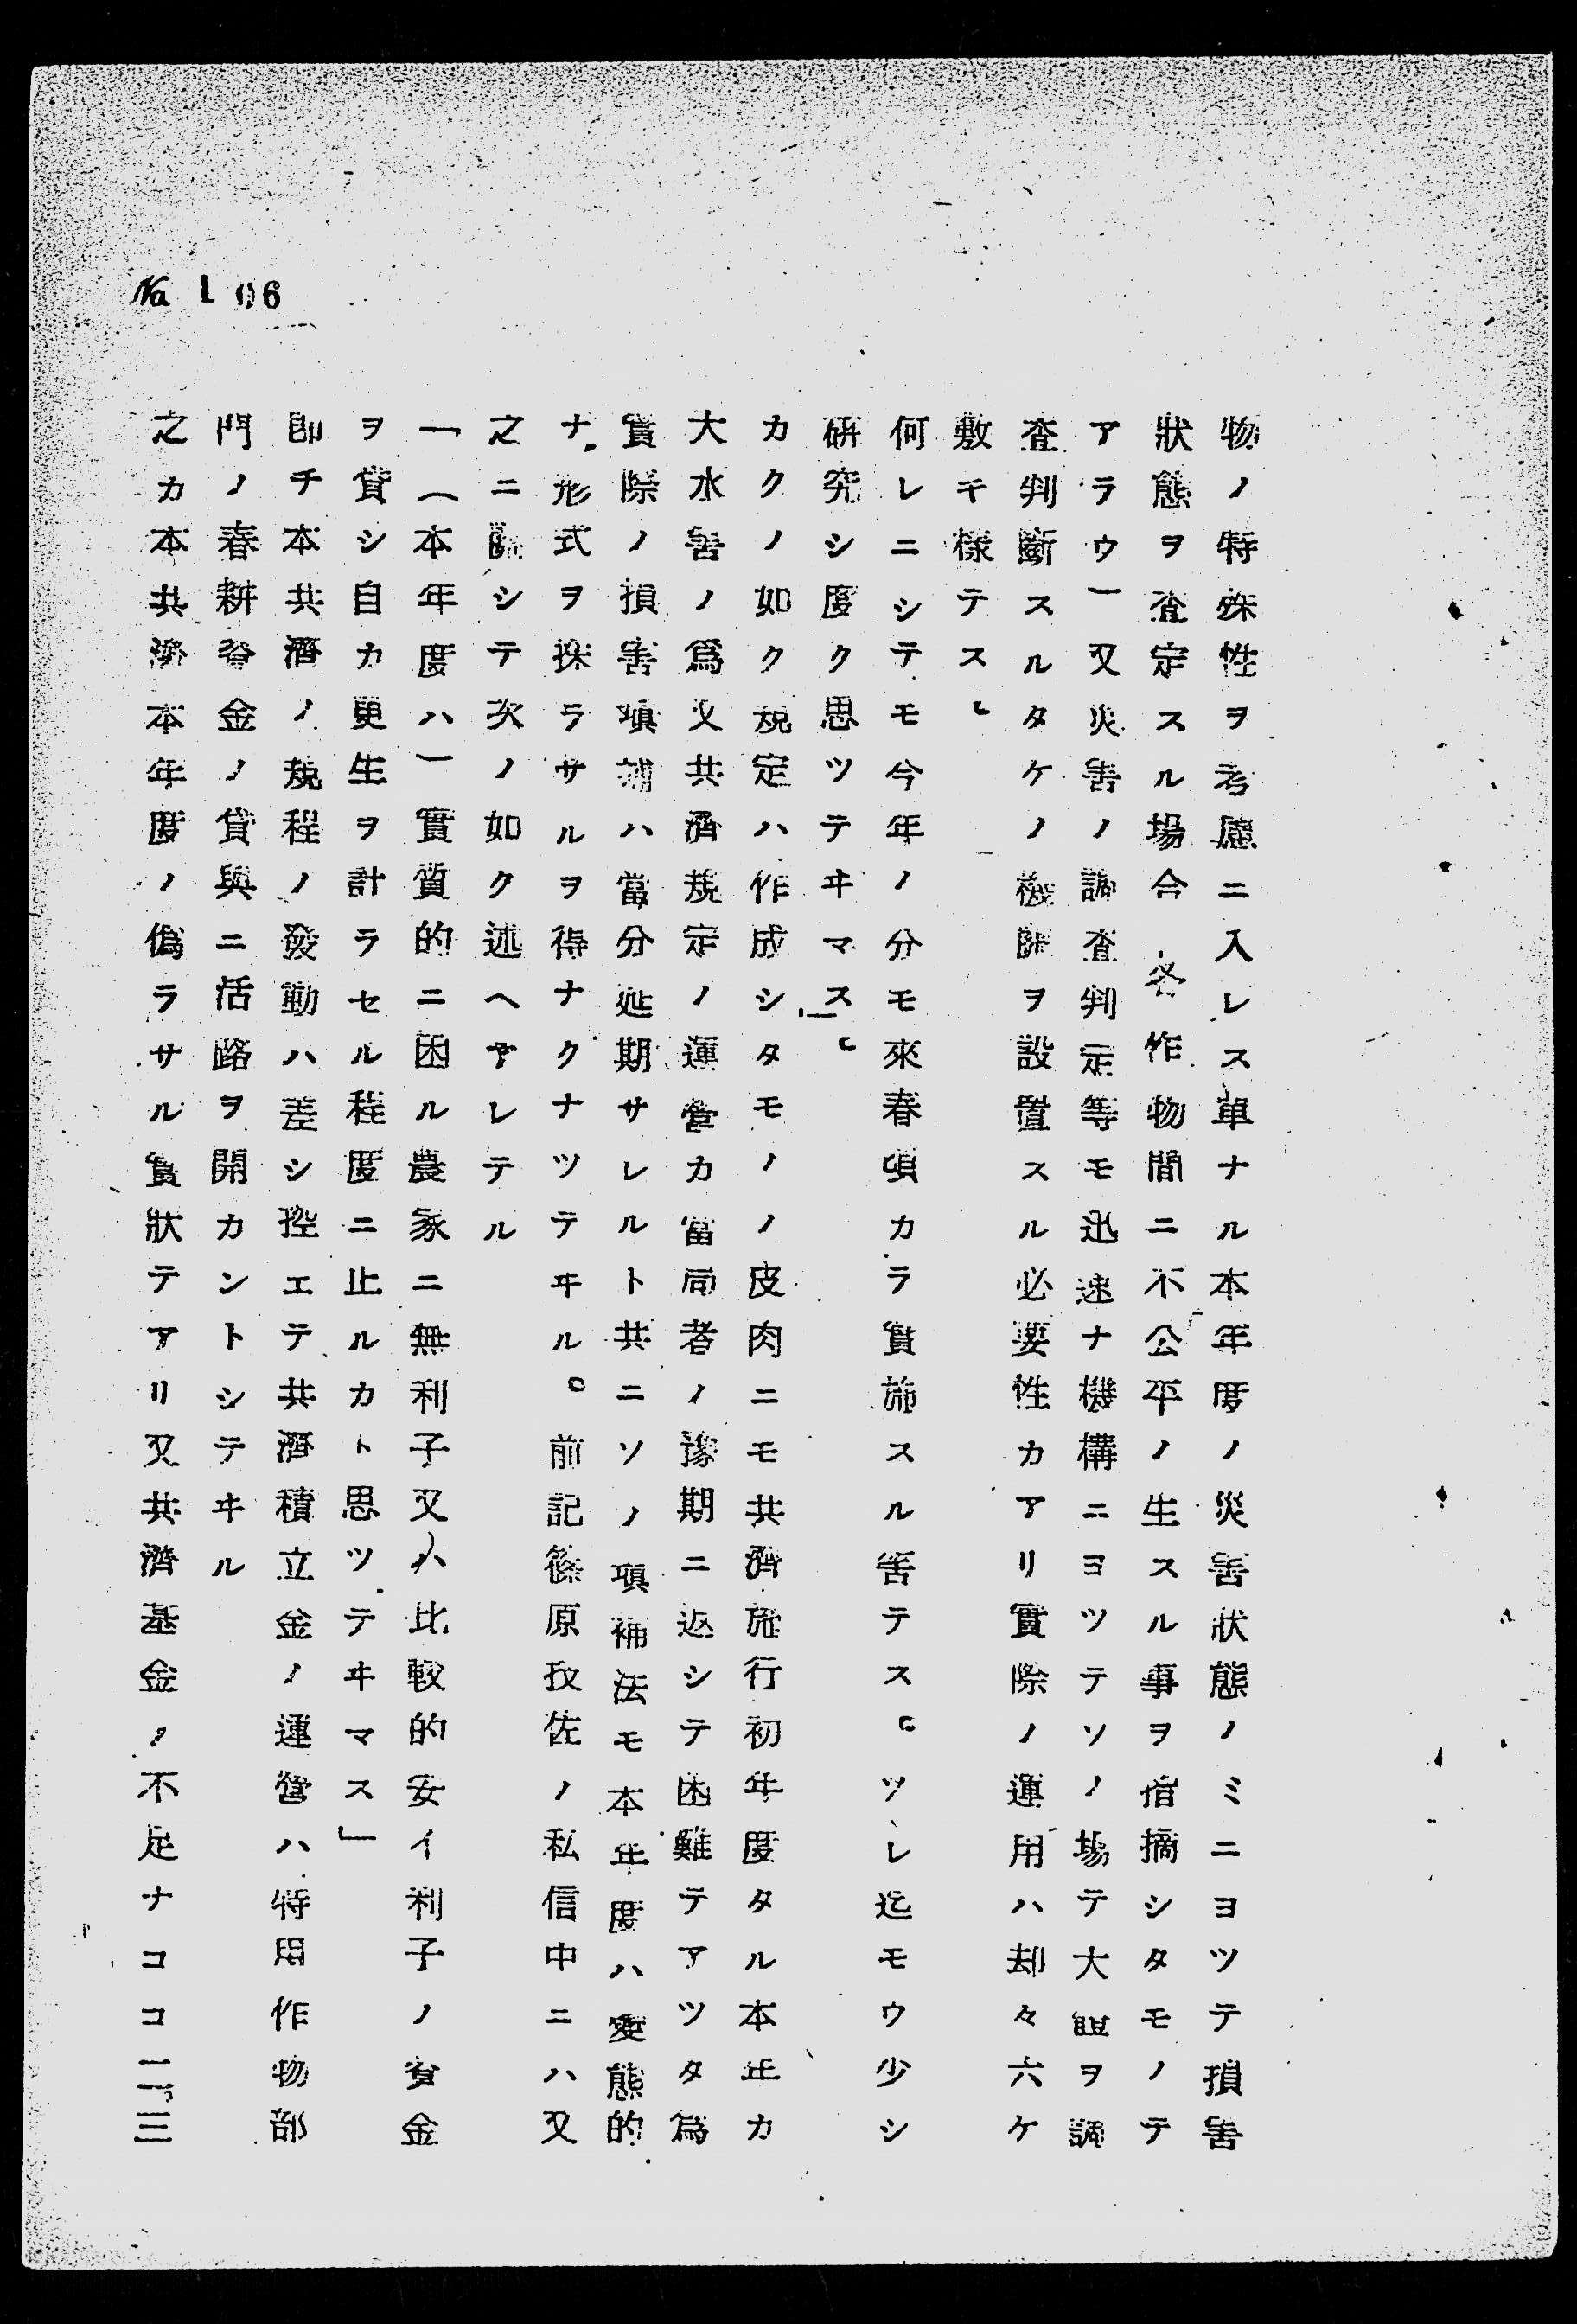 No 106
物ノ特殊性ヲ考慮ニ入レス單ナル本年度ノ災害狀態ノミニヨツテ損害
狀態ヲ査定スル場合各作物間ニ不公平ノ生スル事ヲ指摘シタモノテ
アラウ一又災害ノ調査判定等モ迅速ナ機構ニヨツテソノ場テ大體ヲ調
査判斷スルタケノ機關ヲ設置スル必要性カアリ實際ノ運用ハ却々六ケ
敷キ樣テス。
何レニシテモ今年ノ分モ來春頃カラ實施スル筈テス。ツレ迄モウ少シ
硏究シ度ク思ツテヰマス。
カクノ如ク規定ハ作成シタモノノ皮肉ニモ共濟施行初年度タル本年カ
大水害ノ爲又共濟規定ノ運營カ當局者ノ豫期ニ返シテ困難テアツタ爲
實際ノ損害塡補ハ當分延期サレルト共ニソノ塡補法モ本年度ハ變態的
ナ形式ヲ採ラサルヲ得ナクナツテヰル。前記篠原技佐ノ私信中ニハ又
之ニ關シテ次ノ如ク述ヘテアレテル
一(本年度ハ一實質的ニ困ル農家ニ無利子又ハ比較的安イ利子ノ資金
ヲ貸シ自カ更生ヲ計ラセル程度ニ止ルカト思ツテヰマス」
卽チ本共濟ノ規程ノ發動ハ差シ控エテ共濟積立金ノ運營ハ特用作物部
門ノ春耕資金ノ貸與ニ活路ヲ開カントシテヰル
之カ本共濟本年度ノ僞ラサル實狀テアリ又共濟基金ノ不足ナココ二、三